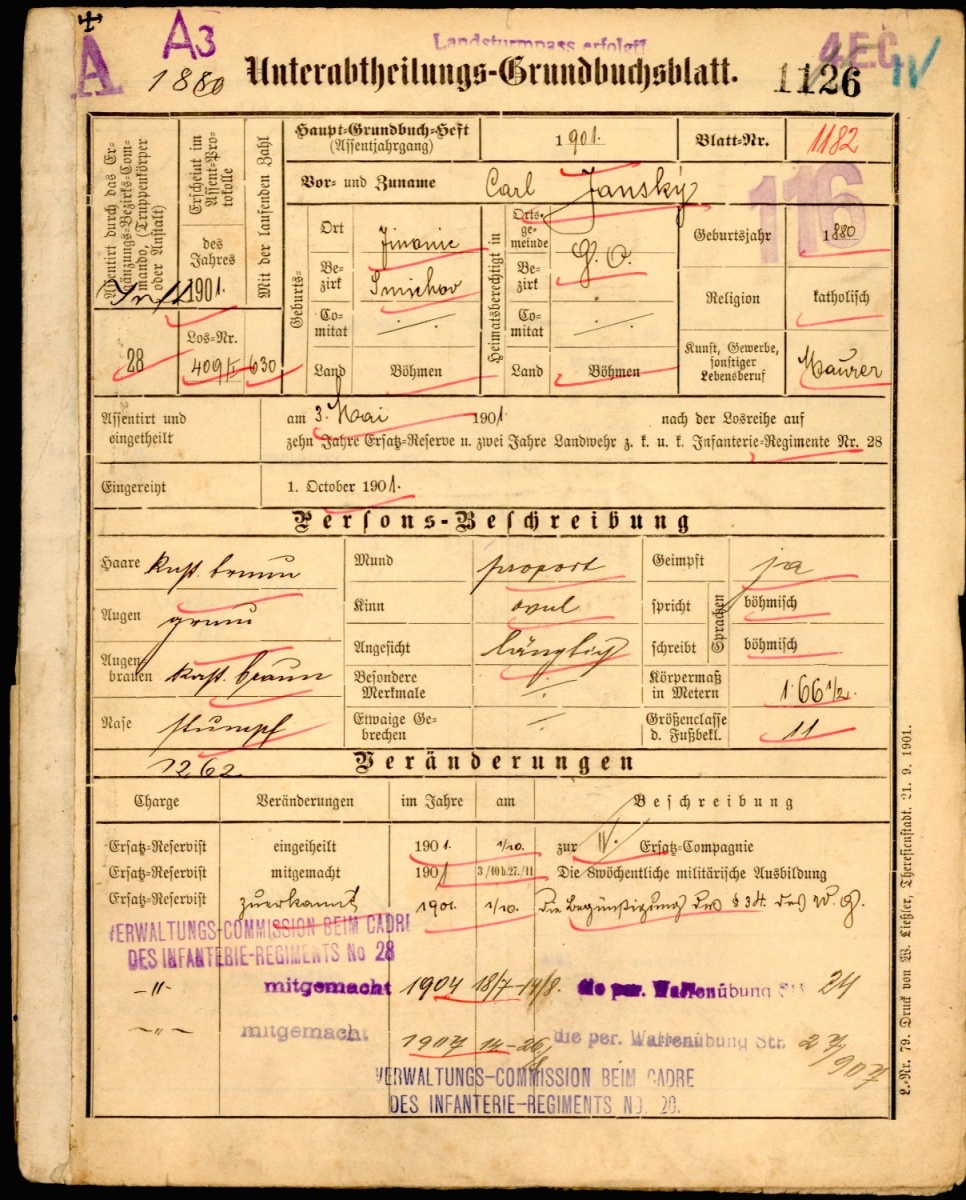 A A3 Landsturmpass erfolgt! 4EC IV
1880 Unterabtheilungs-Grundbuchsblatt. 1126
Assentirt durch das Ergänzungs-Bezirks-Commando, (Truppenkörper oder Anstalt)
28
Erscheint im Assent-Protokolle
des Jahres
1901.
Los-Nr.
409/I
Mit der laufenden Zahl
630
Haupt-Grundbuch-Heft
(Assentjahrgang)
1901.
Blatt-Nr.
1182
Vor- und Zuname Carl Janský
116
Geburts-
Ort Jinonic
Bezirk Smichov
Comitat
Land Böhmen
Heimatsberechtigt in
Ortsgemeinde G. O.
Bezirk
Comitat
Land Böhmen
Geburtsjahr 1880
Religion katholisch
Kunst, Gewerbe, sonstiger Lebensberuf Maurer
Assentirt und eingetheilt
am 3. Mai 1901 nach der Losreihe auf
zehn Jahre Ersatz-Reserve u. zwei Jahre Landwehr z. k. u. k. Infanterie-Regimente Nr. 28
Eingereiht 1. October 1901.
Persons-Beschreibung
Haare kast. braun
Augen grau
Augenbrauen kast. braun
Nase stumpf
Mund proport
Kinn oval
Angesicht länglich
Besondere Merkmale
Etwaige Gebrechen
Geimpft ja
Sprachen
spricht böhmisch
schreibt böhmisch
Körpermaß in Metern 1·66 1/2.
Größenclasse d. Fußbekl. 11
1262. Veränderungen
Charge Veränderungen im Jahre am Beschreibung
Ersatz-Reservist eingetheilt 1901. 1/10. zur IV. Ersatz-Compagnie
Ersatz-Reservist mitgemacht 1901 3/10 b. 27./11 Die 8wöchentliche militärische Ausbildung
Ersatz-Reservist zuerkannt 1901. 1/10. die Begünstigung des § 34. des W. G.
VERWALTUNGS-COMMISSION BEIM CADRE
DES INFANTERIE-REGIMENTS No 28
-"- mitgemacht 1904 18/7-14/8. die per. Waffenübung St. 24
-"- mitgemacht 1907 14-26/8 die per. Waffenübung St. 27/907
VERWALTUNGS-COMMISSION BEIM CADRE
DES INFANTERIE-REGIMENTS NO. 28.
L.-Nr. 79. Druck von W. Ließler, Theresienstadt. 21. 9. 1901.